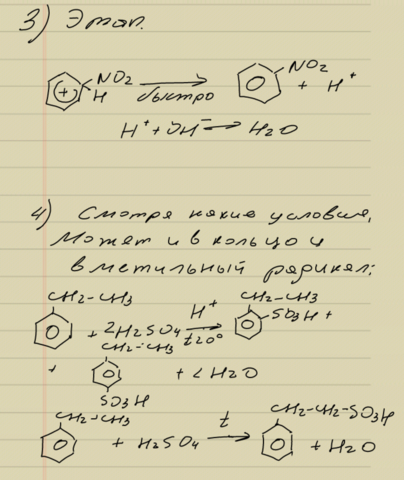 3) Этап.
NO2
H
(+)
быстро
NO2
+ H+
H+ + OH- → H2O
4) Смотря какие условия,
может и в кольцо и
в метильный радикал:
CH2-CH3
+ 2H2SO4
H+
t20°
CH2-CH3
SO3H +
+
CH2-CH3
SO3H
+ 2H2O
CH2-CH3
+ H2SO4
t
CH2-CH2-SO3H
+ H2O